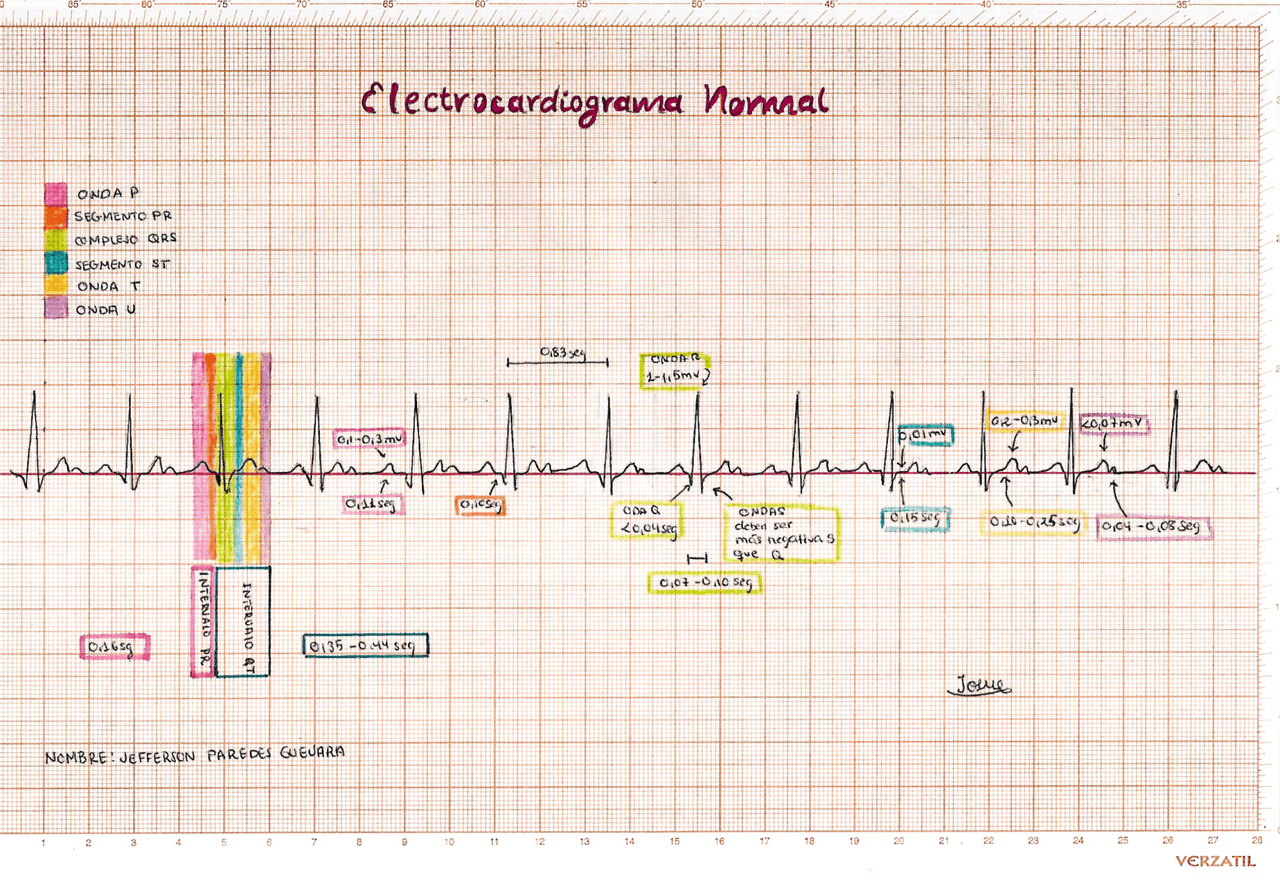 85 80 75 70 65 60 55 50 45 40 35
Electrocardiograma Normal
ONDA P
SEGMENTO PR
COMPLEJO QRS
SEGMENTO ST
ONDA T
ONDA U
0,83 seg
ONDA R
1-1,5mv
0,1-0,3mv
0,01mv
0,2-0,3mv
<0,07mv
0,11seg
0,10seg
ODA Q
<0,04seg
ONDAS
deben ser
más negativas
que Q
0,15seg
0,10-0,25seg
0,04-0,08seg
0,07-0,10seg
INTERVALO PR
INTERVALO QT
0,16sg
0,35-0,44 seg
Josue
NOMBRE: JEFFERSON PAREDES GUEVARA
1 2 3 4 5 6 7 8 9 10 11 12 13 14 15 16 17 18 19 20 21 22 23 24 25 26 27 28
VERZATIL